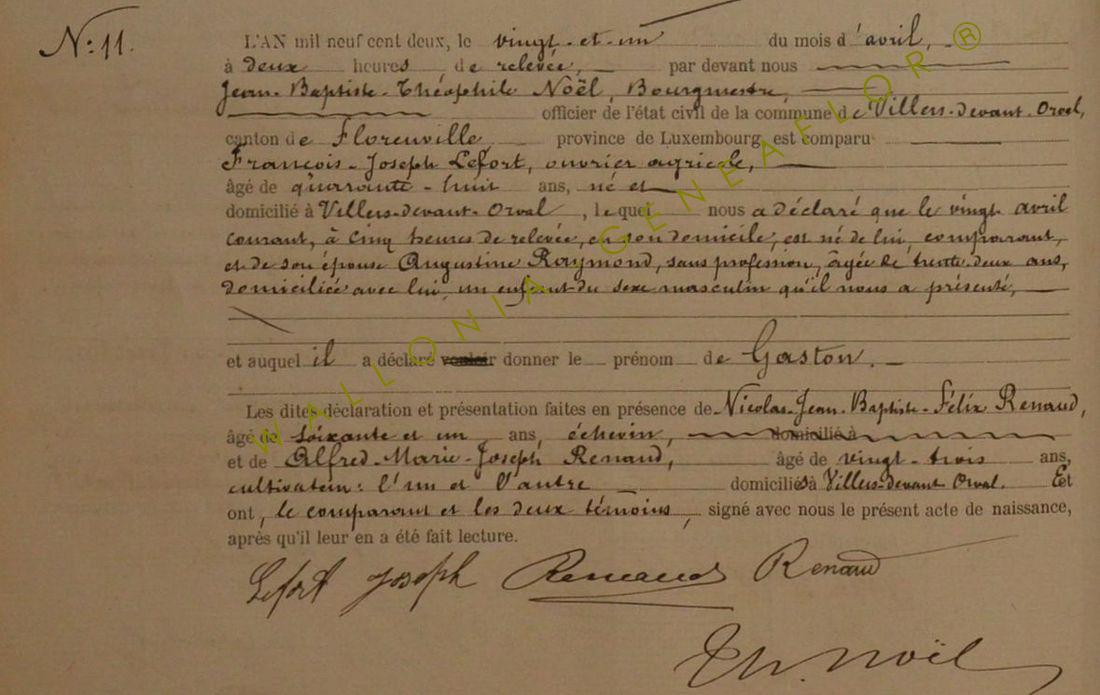 N: 11.
L'AN mil neuf cent deux, le vingt-et-un du mois d'avril,
à deux heures de relevée, par devant nous
Jean-Baptiste-Théophile Noël, Bourgmestre,
officier de l'état civil de la commune de Villers-devant-Orval,
canton de Florenville province de Luxembourg, est comparu
François-Joseph Lefort, ouvrier agricole,
âgé de quarante-huit ans, né et
domicilié à Villers-devant-Orval, lequel nous a déclaré que le vingt avril
courant, à cinq heures de relevée, en son domicile, est né de lui, comparant,
et de son épouse Augustine Raymond, sans profession, âgée de trente-deux ans,
domiciliée avec lui, un enfant du sexe masculin qu'il nous a présenté,
et auquel il a déclaré vouloir donner le prénom de Gaston.
Les dites déclaration et présentation faites en présence de Nicolas-Jean-Baptiste-Félix Renaud,
âgé de soixante et un ans, échevin, domicilié à
et de Alfred-Marie-Joseph Renaud, âgé de vingt-trois ans,
cultivateur: l'un et l'autre domiciliés à Villers-devant-Orval. Et
ont, le comparant et les deux témoins, signé avec nous le présent acte de naissance,
après qu'il leur en a été fait lecture.
Lefort Joseph Renaud Renaud
Th. Noël
WALLONIA GENEAFLOR ®